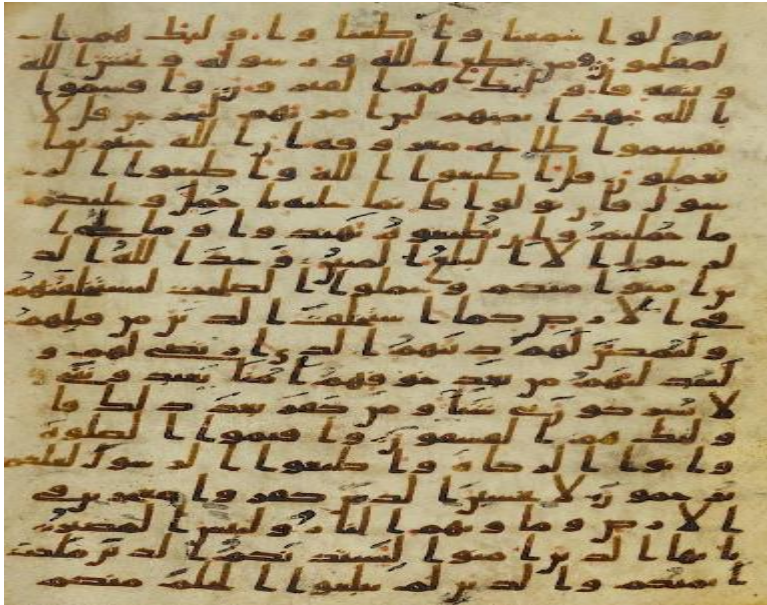 يقولوا سمعنا واطعنا واولئك هم ا
لمفلحون ومن يطع الله ورسوله ويخش الله
ويتقه فاولئك هم الفائزون واقسموا
بالله جهد ايمنهم لئن امرتهم ليخرجن قل لا
تقسموا طاعه معروفه ان الله خبير بما
تعملون قل اطيعوا الله واطيعوا الر
سول فان تولوا فانما عليه ما حمل وعليكم
ما حملتم وان تطيعوه تهتدوا وما على ا
لرسول الا البلغ المبين وعد الله الذ
ين امنوا منكم وعملوا الصلحت ليستخلفنهم
في الارض كما استخلف الذين من قبلهم
وليمكنن لهم دينهم الذي ارتضى لهم و
ليبدلنهم من بعد خوفهم امنا يعبدونني
لا يشركون بي شيا ومن كفر بعد ذلك فا
ولئك هم الفسقون واقيموا الصلوة
واتوا الزكوة واطيعوا الرسول لعلكم
ترحمون لا تحسبن الذين كفروا معجزين في
الارض وماويهم النار ولبئس المصير
يايها الذين امنوا ليستذنكم الذين ملكت
ايمنكم والذين لم يبلغوا الحلم منكم